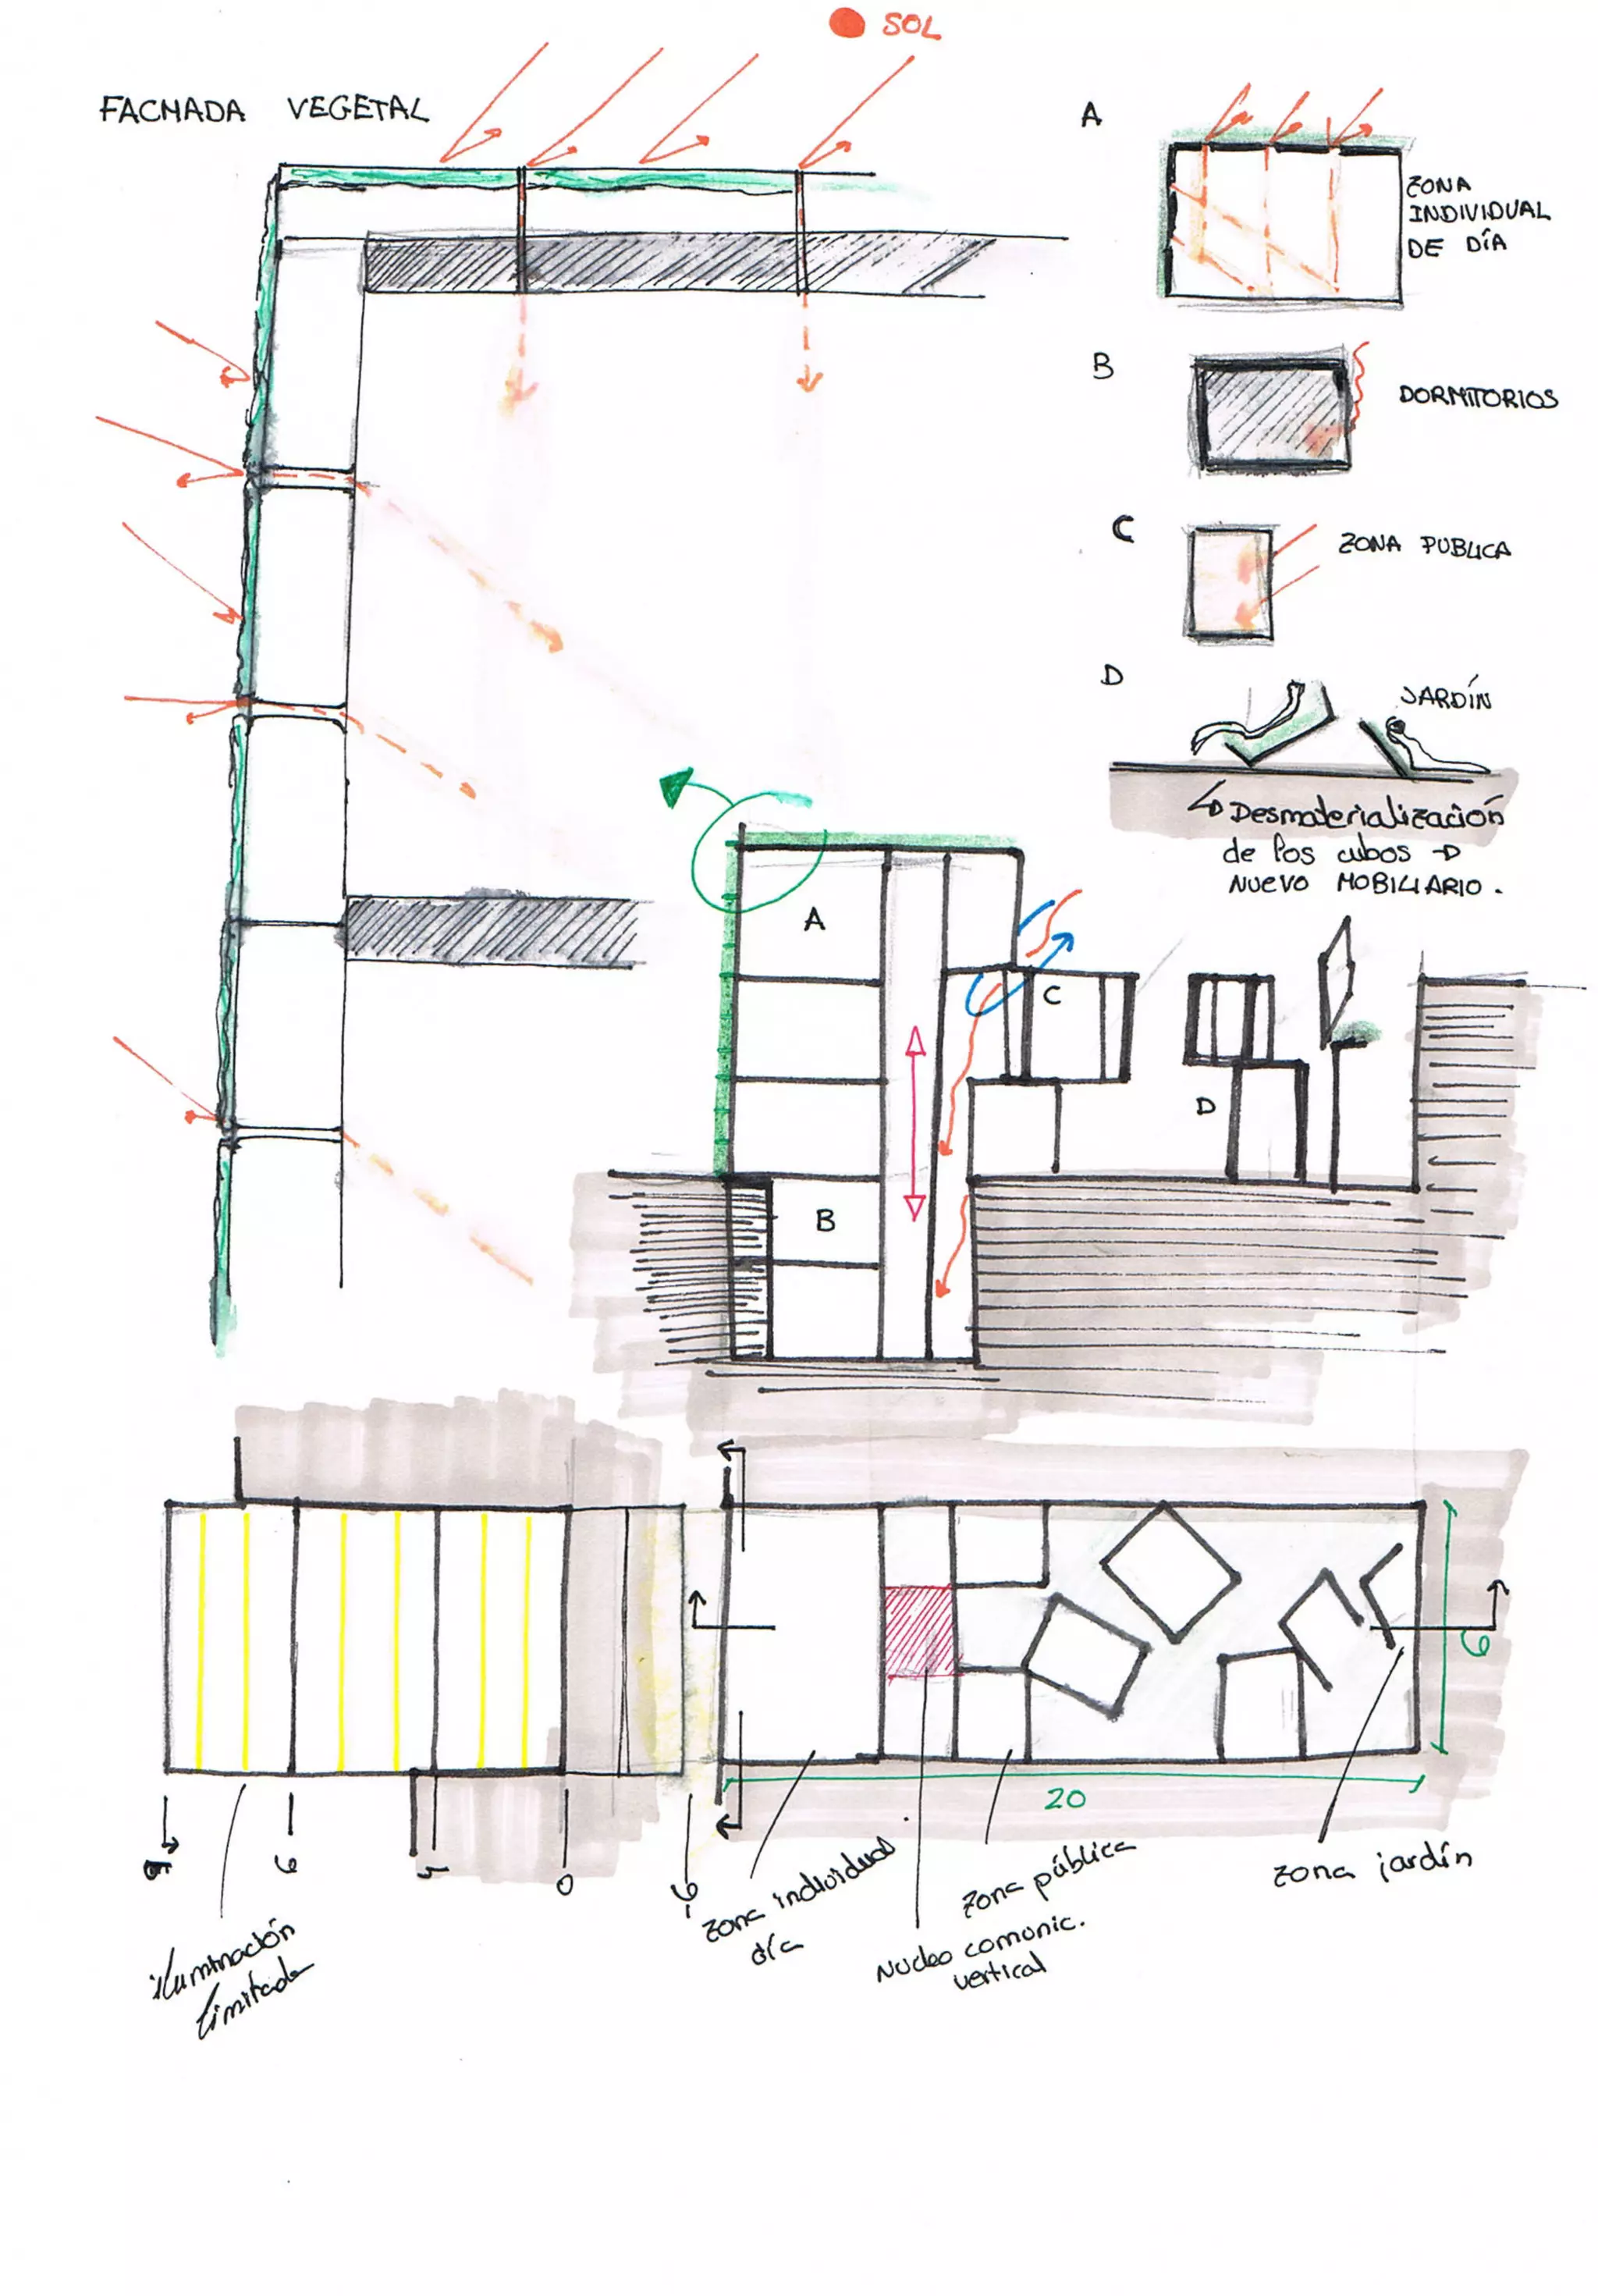 SOL
FACHADA VEGETAL
A
ZONA
INDIVIDUAL
DE DÍA
B
DORMITORIOS
C
ZONA PUBLICA
D
JARDÍN
Desmaterialización
de los cubos
NUEVO MOBILIARIO.
A
C
D
B
6
20
9
6
3
0
-6
iluminación
limitada
zona individual
día
Nucleo comunic.
vertical
zona pública
zona jardín